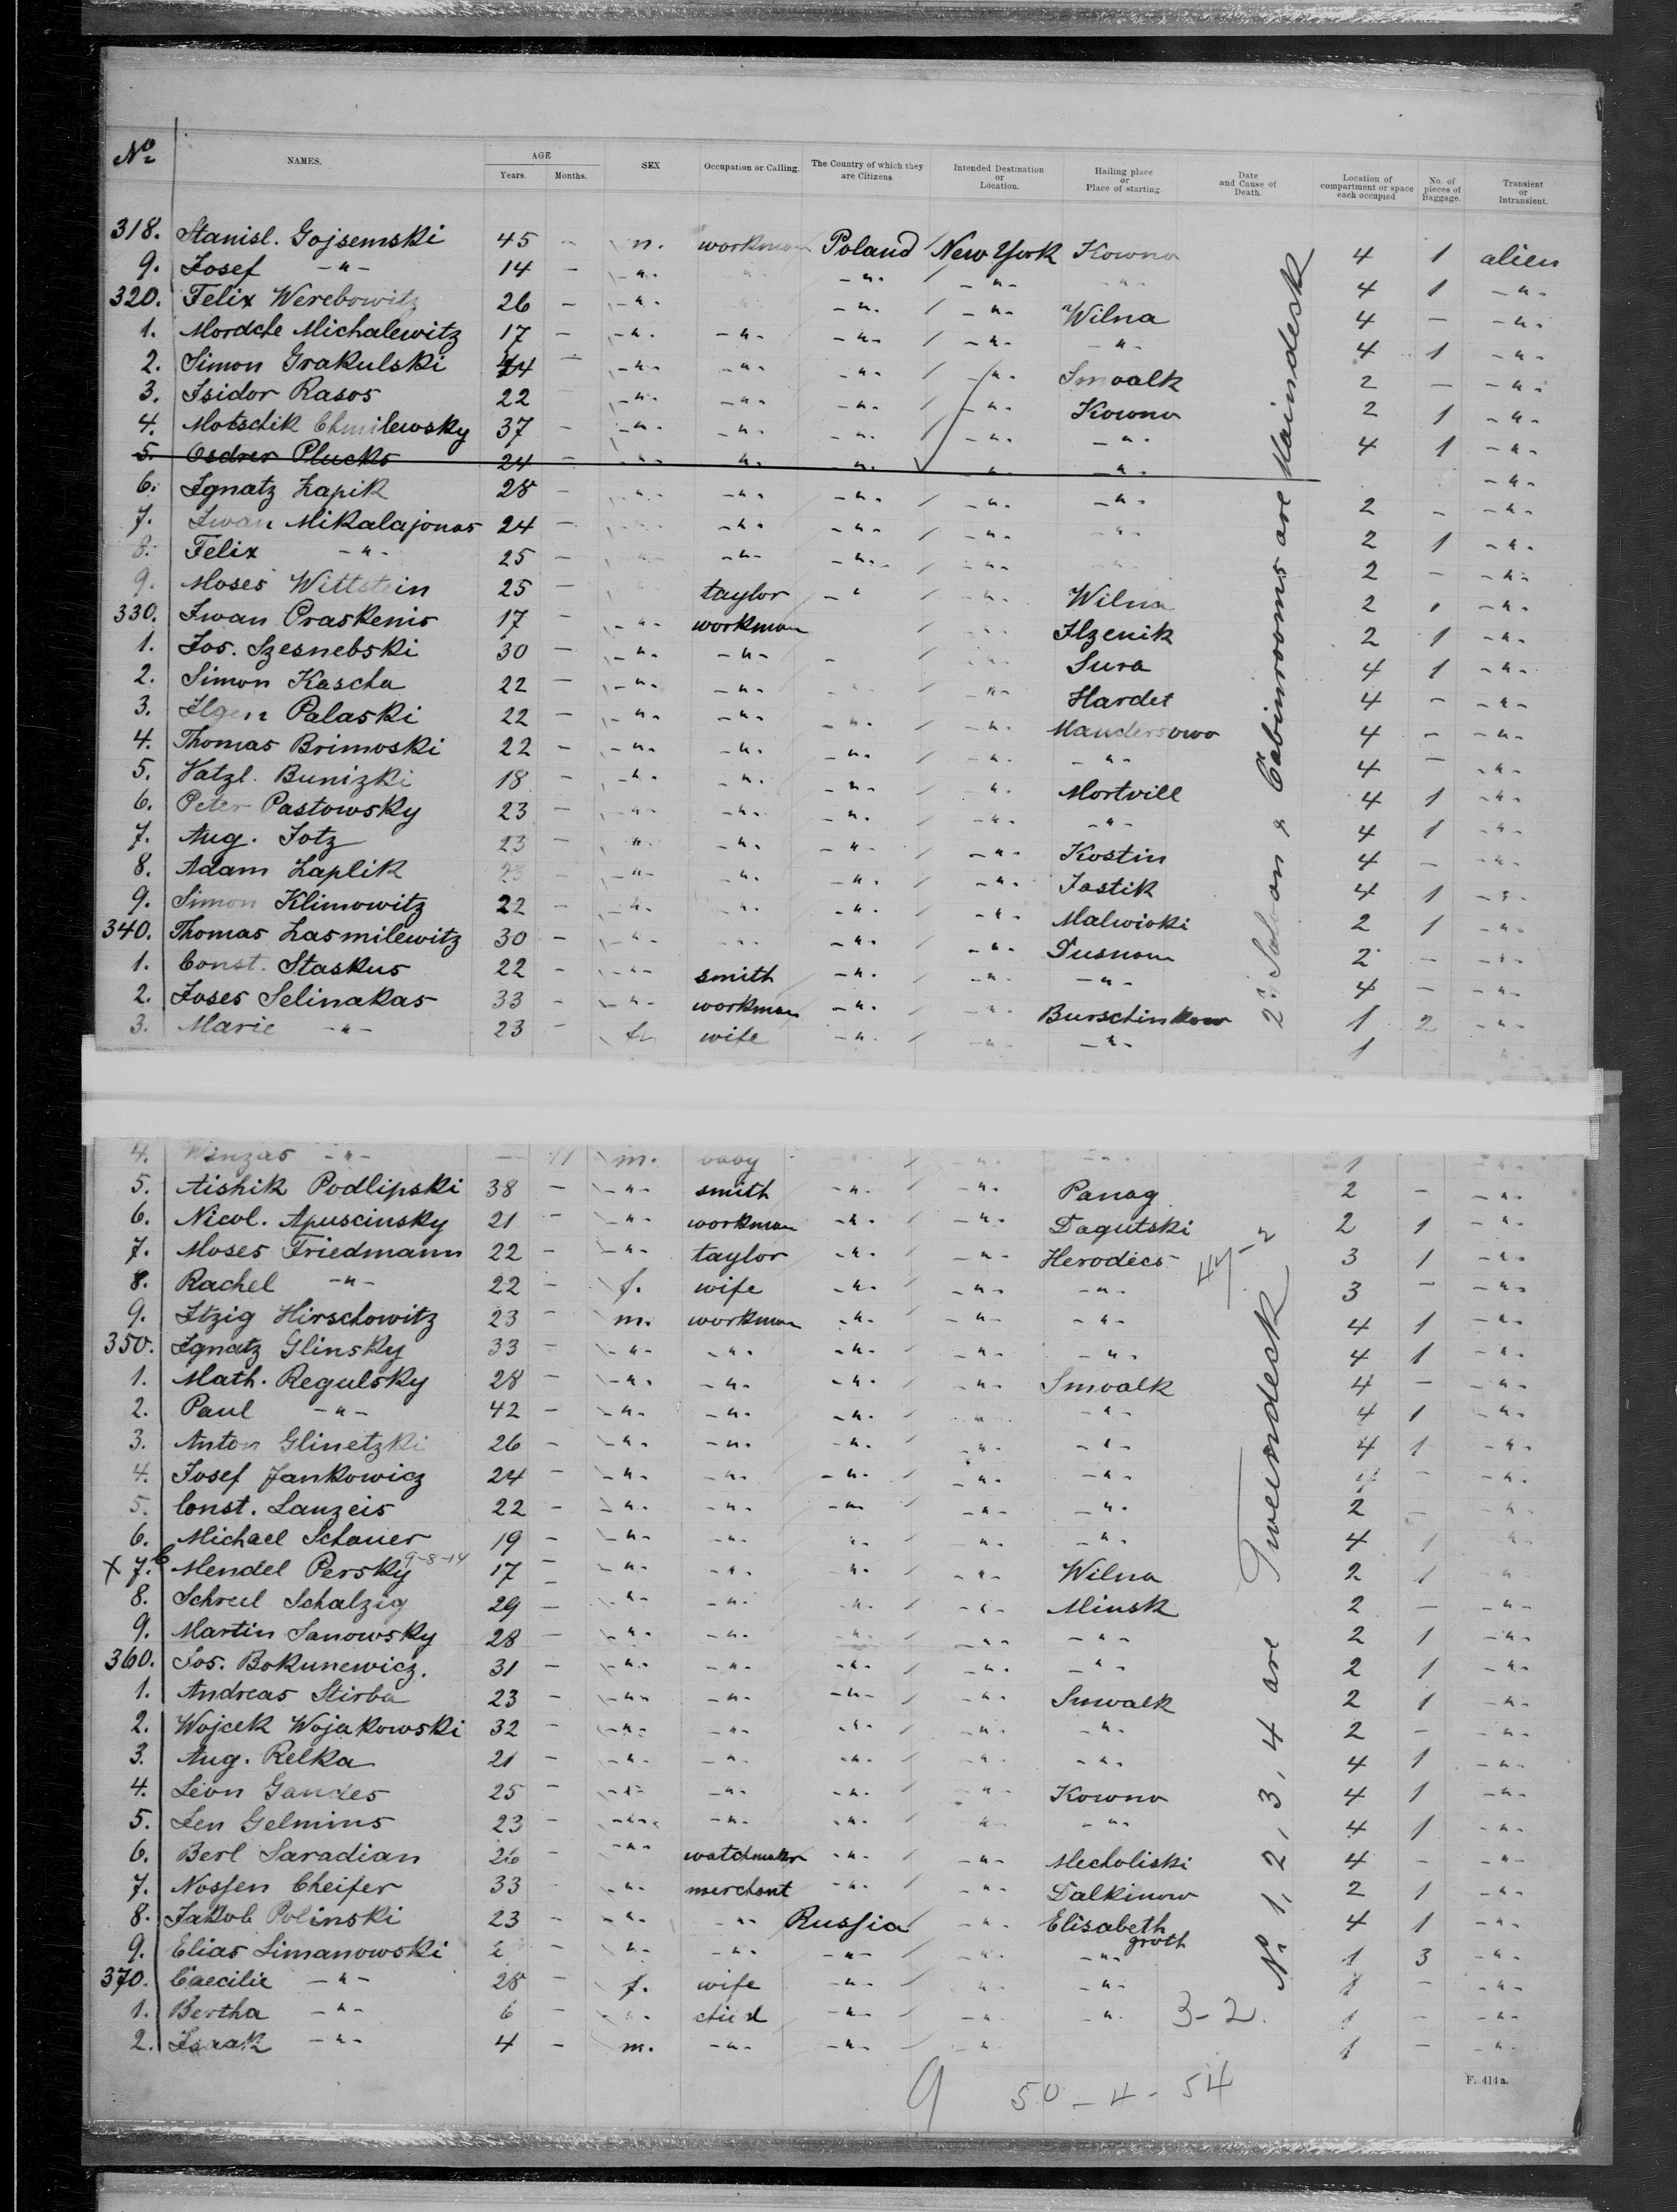 No NAMES. AGE Years. Months. SEX Occupation or Calling. The Country of which they are Citizens. Intended Destination or Location. Hailing place or Place of starting. Date and Cause of Death. Location of compartment or space each occupied No. of pieces of Baggage. Transient or Intransient.
318. Stanisl. Gojsemski 45 - m. workman Poland New York Kowno 4 1 alien
9. Josef -"- 14 - -"- -"- -"- 4 1 -"-
320. Felix Werebowitz 26 - -"- -"- -"- Wilna 4 - -"-
1. Mordche Michalewitz 17 - -"- -"- -"- -"- -"- 4 1 -"-
2. Simon Grakulski 44 - -"- -"- -"- -"- Suwalk 2 - -"-
3. Isidor Rasos 22 -"- -"- -"- -"- Kowno 2 1 -"-
4. Motschik Chmilewsky 37 - -"- -"- -"- -"- -"- 4 1 -"-
5. Osdrer Plucks 24 - -"- -"- -"- -"- -"- -"-
6. Ignatz Zapik 28 - -"- -"- -"- -"- -"- 2 - -"-
7. Iwan Mikalajonas 24 - -"- -"- -"- -"- 2 1 -"-
8. Felix -"- 25 - -"- -"- -"- 2 - -"-
9. Moses Wittstein 25 - taylor -"- -"- Wilna 2 -"-
330. Iwan Praskenis 17 - -"- workman -"- Ilzenik 2 1 -"-
1. Jos. Szesnebski 30 - -"- -"- - -"- Sura 4 1 -"-
2. Simon Kascha 22 - -"- -"- -"- Hardet 4 - -"-
3. Palaski 22 - -"- -"- -"- -"- Maudersowo 4 - -"-
4. Thomas Brimoski 22 - -"- -"- -"- -"- -"- 4 - -"-
5. Vatzl. Bunizki 18 - -"- -"- -"- -"- Mortvill 4 1 -"-
6. Peter Pastowsky 23 - -"- -"- -"- -"- -"- 4 1 -"-
7. Aug. Jotz 23 - -"- -"- -"- -"- Kostin 4 - -"-
8. Adam Zaplik 23 - -"- -"- -"- -"- Jastik 4 1 -"-
9. Simon Klimowitz 22 - -"- -"- -"- -"- Malwioki 2 1 -"-
340. Thomas Zasmilewitz 30 - -"- -"- -"- -"- 2 - -"-
1. Const. Staskus 22 - -"- smith -"- -"- -"- 4 - -"-
2. Joses Selinakas 33 - -"- workman -"- -"- Burschinkow 1 2 -"-
3. Marie -"- 23 - f. wife -"- -"- -"- 1 -"-
2: Saloon & Cabinrooms are Maindeck
4. Winzas -"- - 11 m. baby -"- -"- -"- 1 -"-
5. Aishik Podlipski 38 - -"- smith -"- -"- Panag 2 - -"-
6. Nicol. Apuscinsky 21 - -"- workman -"- -"- Dagutski 2 1 -"-
7. Moses Friedmann 22 - -"- taylor -"- -"- Herodies 3 1 -"-
8. Rachel -"- 22 - f. wife -"- -"- -"- 3 - -"-
9. Itzig Hirschowitz 23 - m. workman -"- -"- -"- 4 1 -"-
350. Ignatz Glinsky 33 - -"- -"- -"- -"- -"- 4 1 -"-
1. Math. Regulsky 28 - -"- -"- -"- -"- Suwalk 4 - -"-
2. Paul -"- 42 - -"- -"- -"- -"- -"- 4 1 -"-
3. Anton Glinetzki 26 - -"- -"- -"- -"- -"- 4 1 -"-
4. Josef Jankowicz 24 - -"- -"- -"- -"- -"- 4 - -"-
5. Const. Lauzeis 22 - -"- -"- -"- -"- -"- 2 - -"-
6. Michael Schauer 19 - -"- -"- -"- -"- -"- 4 1 -"-
x 7. Mendel Persky 9-8-14 17 - -"- -"- -"- -"- Wilna 2 1 -"-
8. Schreil Schalzig 29 - -"- -"- -"- -"- Minsk 2 - -"-
9. Martin Sanowsky 28 - -"- -"- -"- -"- -"- 2 1 -"-
360. Jos. Bokunewicz. 31 - -"- -"- -"- -"- -"- 2 1 -"-
1. Andreas Stirba 23 - -"- -"- -"- -"- Suwalk 2 1 -"-
2. Wojcek Wojakowski 32 - -"- -"- -"- -"- -"- 2 - -"-
3. Aug. Relka 21 - -"- -"- -"- -"- -"- 4 1 -"-
4. Leon Gandes 25 - -"- -"- -"- -"- Kowno 4 1 -"-
5. Len Gelmins 23 - -"- -"- -"- -"- -"- 4 1 -"-
6. Berl Saradian 26 - -"- watchmaker -"- -"- Mecholiski 4 - -"-
7. Nossen Cheifer 33 -"- merchant -"- -"- Dalkinow 2 1 -"-
8. Jakob Polinski 23 - -"- -"- Russia -"- Elisabethgroth 4 1 -"-
9. Elias Limanowski - -"- -"- -"- -"- -"- 1 3 -"-
370. Caecilie -"- 28 - f. wife -"- -"- -"- 1 - -"-
1. Bertha -"- 6 - -"- child -"- -"- -"- 3-2. 1 - -"-
2. Isaak -"- 4 - m. -"- -"- -"- 1 - -"-
No 1, 2, 3, 4 are Tweendeck
9 50-4-54
F. 414a.